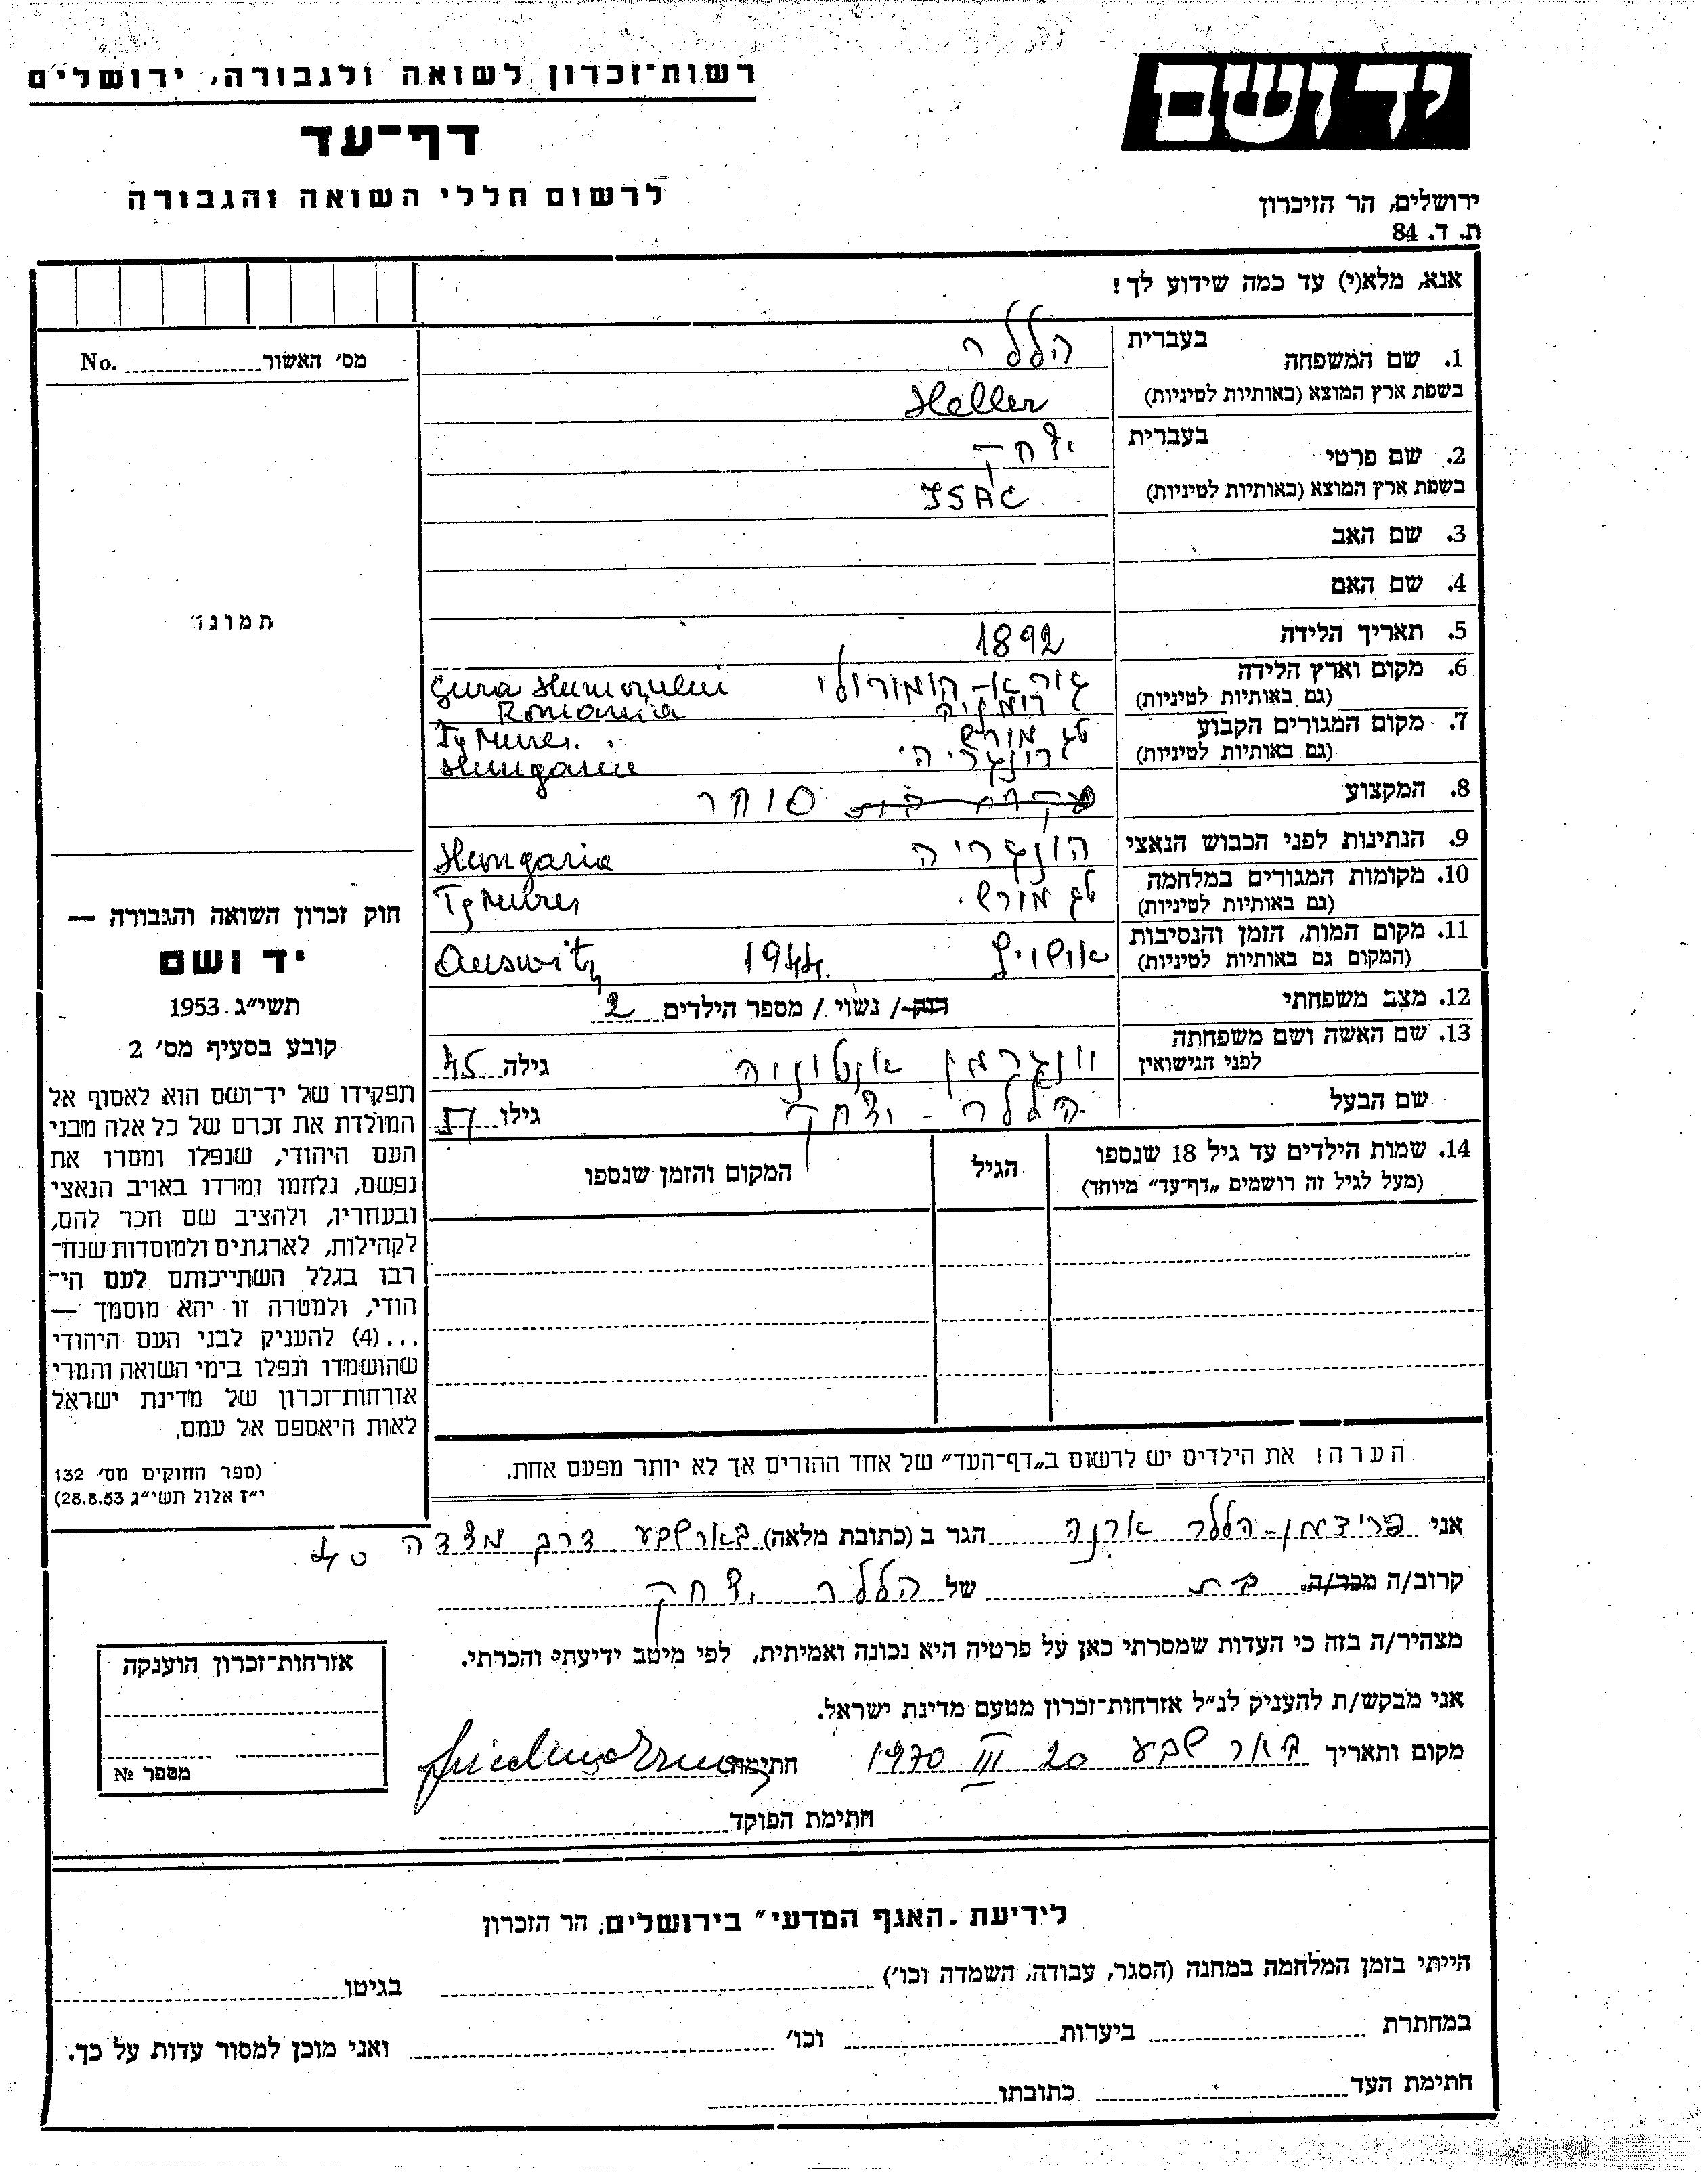 רשות־זכרון לשואה ולגבורה, ירושלים
דף־עד
לרשום חללי השואה והגבורה
יד ושם
ירושלים, הר הזיכרון
ת. ד. 84
אנא, מלא(י) עד כמה שידוע לך!
מס׳ האשור No.
בעברית
1. שם המשפחה
הללר
בשפת ארץ המוצא (באותיות לטיניות)
Heller
בעברית
2. שם פרטי
יצחק
בשפת ארץ המוצא (באותיות לטיניות)
ISAC
3. שם האב
4. שם האם
תמונה
5. תאריך הלידה 1892
6. מקום וארץ הלידה
(גם באותיות לטיניות)
גורא-הומורולוי Gura Humorului
רומניה Romania
7. מקום המגורים הקבוע
(גם באותיות לטיניות)
טג מורש Tg Mures.
הונגריה Hungaria
8. המקצוע סוחר
9. הנתינות לפני הכבוש הנאצי הונגריה Hungaria
10. מקומות המגורים במלחמה
(גם באותיות לטיניות)
טג מורש. Tg Mures
11. מקום המות, הזמן והנסיבות
(המקום גם באותיות לטיניות)
אושויץ 1944. Auswitz
12. מצב משפחתי רוק/ נשוי / מספר הילדים 2
13. שם האשה ושם משפחתה
לפני הנישואין
וינגרמן אנטוניה גילה 45
שם הבעל הללר - יצחק גילו
14. שמות הילדים עד גיל 18 שנספו
(מעל לגיל זה רושמים „דף־עד״ מיוחד)
הגיל
המקום והזמן שנספו
חוק זכרון השואה והגבורה —
יד ושם
תשי״ג 1953
קובע בסעיף מס׳ 2
תפקידו של יד־ושם הוא לאסוף אל
המולדת את זכרם של כל אלה מבני
העם היהודי, שנפלו ומסרו את
נפשם, נלחמו ומרדו באויב הנאצי
ובעוזריו, ולהציב שם וזכר להם,
לקהילות, לארגונים ולמוסדות שנח־
רבו בגלל השתייכותם לעם הי־
הודי, ולמטרה זו יהא מוסמך —
...(4) להעניק לבני העם היהודי
שהושמדו ונפלו בימי השואה והמרי
אזרחות־זכרון של מדינת ישראל
לאות היאספם אל עמם.
(ספר החוקים מס׳ 132
י״ז אלול תשי״ג 28.8.53)
הערה! את הילדים יש לרשום ב„דף־העד״ של אחד ההורים אך לא יותר מפעם אחת.
אני פרידמן-הללר ארנה הגר ב (כתובת מלאה) באר שבע דרך מצדה 40
קרוב/ה מכר/ה. בת של הללר יצחק
מצהיר/ה בזה כי העדות שמסרתי כאן על פרטיה היא נכונה ואמיתית, לפי מיטב ידיעתי והכרתי.
אני מבקש/ת להעניק לנ״ל אזרחות־זכרון מטעם מדינת ישראל.
מקום ותאריך באר שבע 20 III 1970 חתימה
חתימת הפוקד
אזרחות־זכרון הוענקה
מספר №
לידיעת „האגף המדעי״ בירושלים, הר הזכרון
הייתי בזמן המלחמה במחנה (הסגר, עבודה, השמדה וכו׳) בגיטו
במחתרת ביערות וכו׳ ואני מוכן למסור עדות על כך.
חתימת העד כתובתו